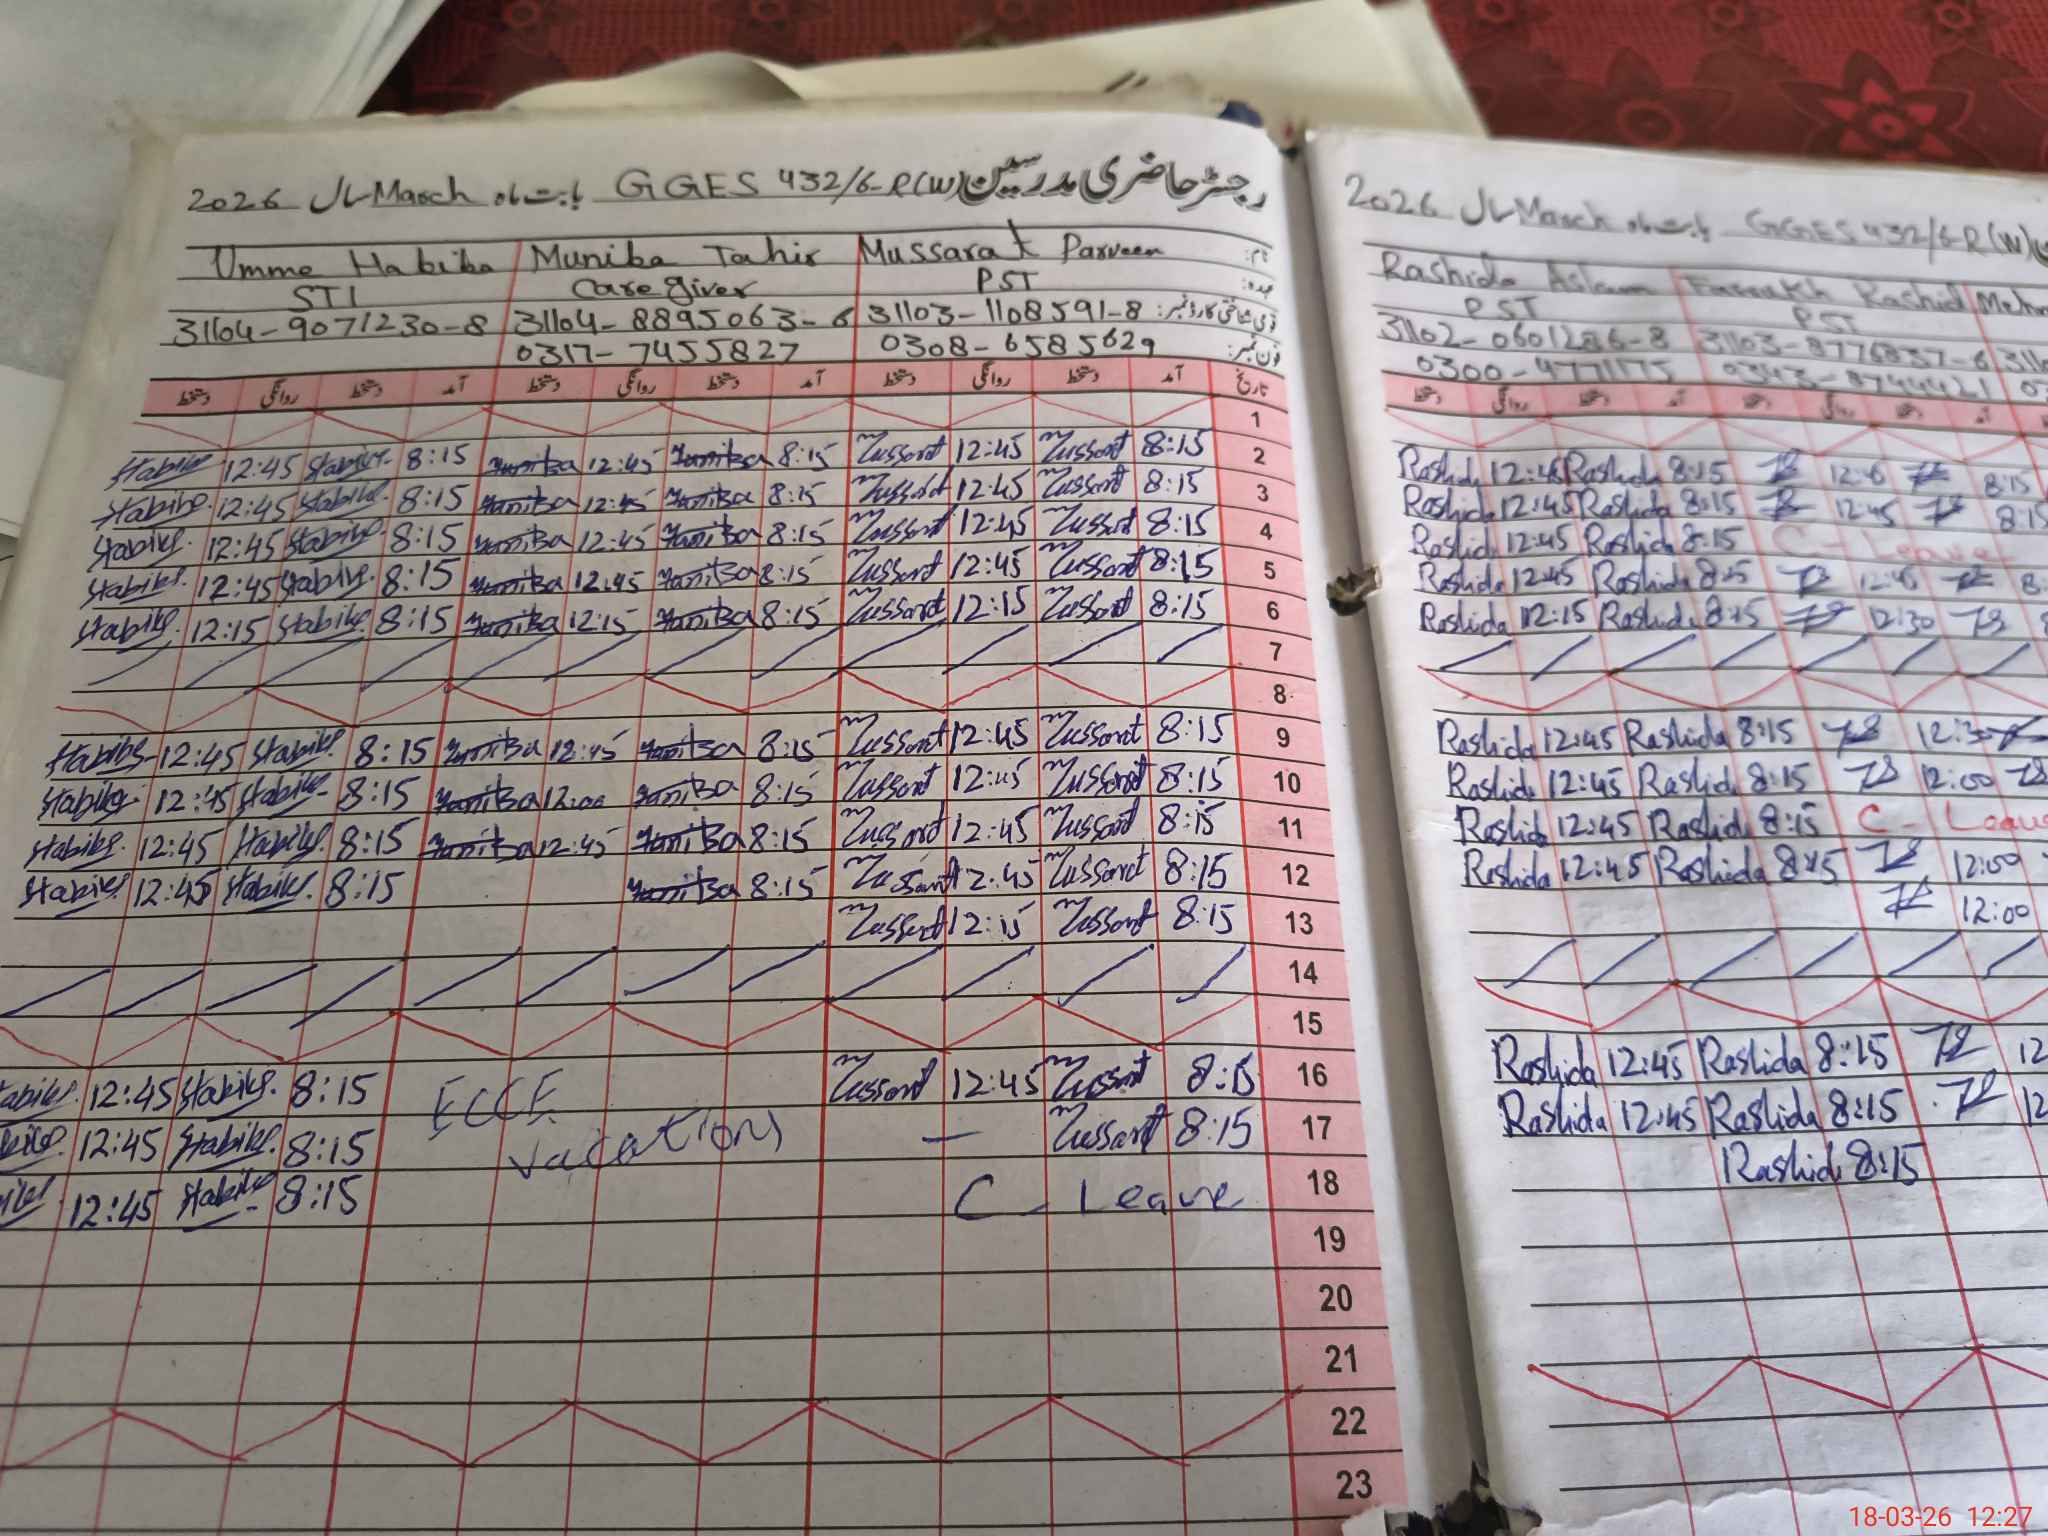 رجسٹر حاضری مدرسین GGES 432/6-R(W) بابت ماہ March سال 2026
Umme Habiba Muniba Tahir Mussarat Parveen نام:
STI Care giver PST عہدہ:
31104-9071230-8 31104-8895063-6 31103-1108591-8 قومی شناختی کارڈ نمبر:
0317-7455827 0308-6585629 فون نمبر:
دستخط روانگی دستخط آمد دستخط روانگی دستخط آمد دستخط روانگی دستخط آمد تاریخ
1
Habiba 12:45 Habiba 8:15 Muniba 12:45 Muniba 8:15 Mussarat 12:45 Mussarat 8:15 2
Habiba 12:45 Habiba 8:15 Muniba 12:45 Muniba 8:15 Mussarat 12:45 Mussarat 8:15 3
Habiba 12:45 Habiba 8:15 Muniba 12:45 Muniba 8:15 Mussarat 12:45 Mussarat 8:15 4
Habiba 12:45 Habiba 8:15 Muniba 12:45 Muniba 8:15 Mussarat 12:45 Mussarat 8:15 5
Habiba 12:15 Habiba 8:15 Muniba 12:15 Muniba 8:15 Mussarat 12:15 Mussarat 8:15 6
7
8
Habiba 12:45 Habiba 8:15 Muniba 12:45 Muniba 8:15 Mussarat 12:45 Mussarat 8:15 9
Habiba 12:45 Habiba 8:15 Muniba 12:00 Muniba 8:15 Mussarat 12:45 Mussarat 8:15 10
Habiba 12:45 Habiba 8:15 Muniba 12:45 Muniba 8:15 Mussarat 12:45 Mussarat 8:15 11
Habiba 12:45 Habiba 8:15 Muniba 8:15 Mussarat 12:45 Mussarat 8:15 12
Mussarat 12:15 Mussarat 8:15 13
14
15
12:45 Habiba 8:15 ECCE Mussarat 12:45 Mussarat 8:15 16
12:45 Habiba 8:15 vacation — Mussarat 8:15 17
12:45 Habiba 8:15 C - Leave 18
19
20
21
22
23
GGES 432/6-R(W) بابت ماہ March سال 2026
Rashida Aslam Farrakh Rashid
PST PST
31102-0601286-8 31103-8776837-6
0300-4771175 0343-8744421
دستخط روانگی دستخط آمد دستخط روانگی دستخط آمد
Rashida 12:45 Rashida 8:15 8:15
Rashida 12:45 Rashida 8:15 12:45
Rashida 12:45 Rashida 8:15 C - Leave
Rashida 12:45 Rashida 8:15 12:45
Rashida 12:15 Rashida 8:15 12:30
Rashida 12:45 Rashida 8:15
Rashida 12:45 Rashida 8:15 12:00
Rashida 12:45 Rashida 8:15 C - Leave
Rashida 12:45 Rashida 8:15 12:00
12:00
Rashida 12:45 Rashida 8:15 12
Rashida 12:45 Rashida 8:15 12
Rashida 8:15
18-03-26 12:27